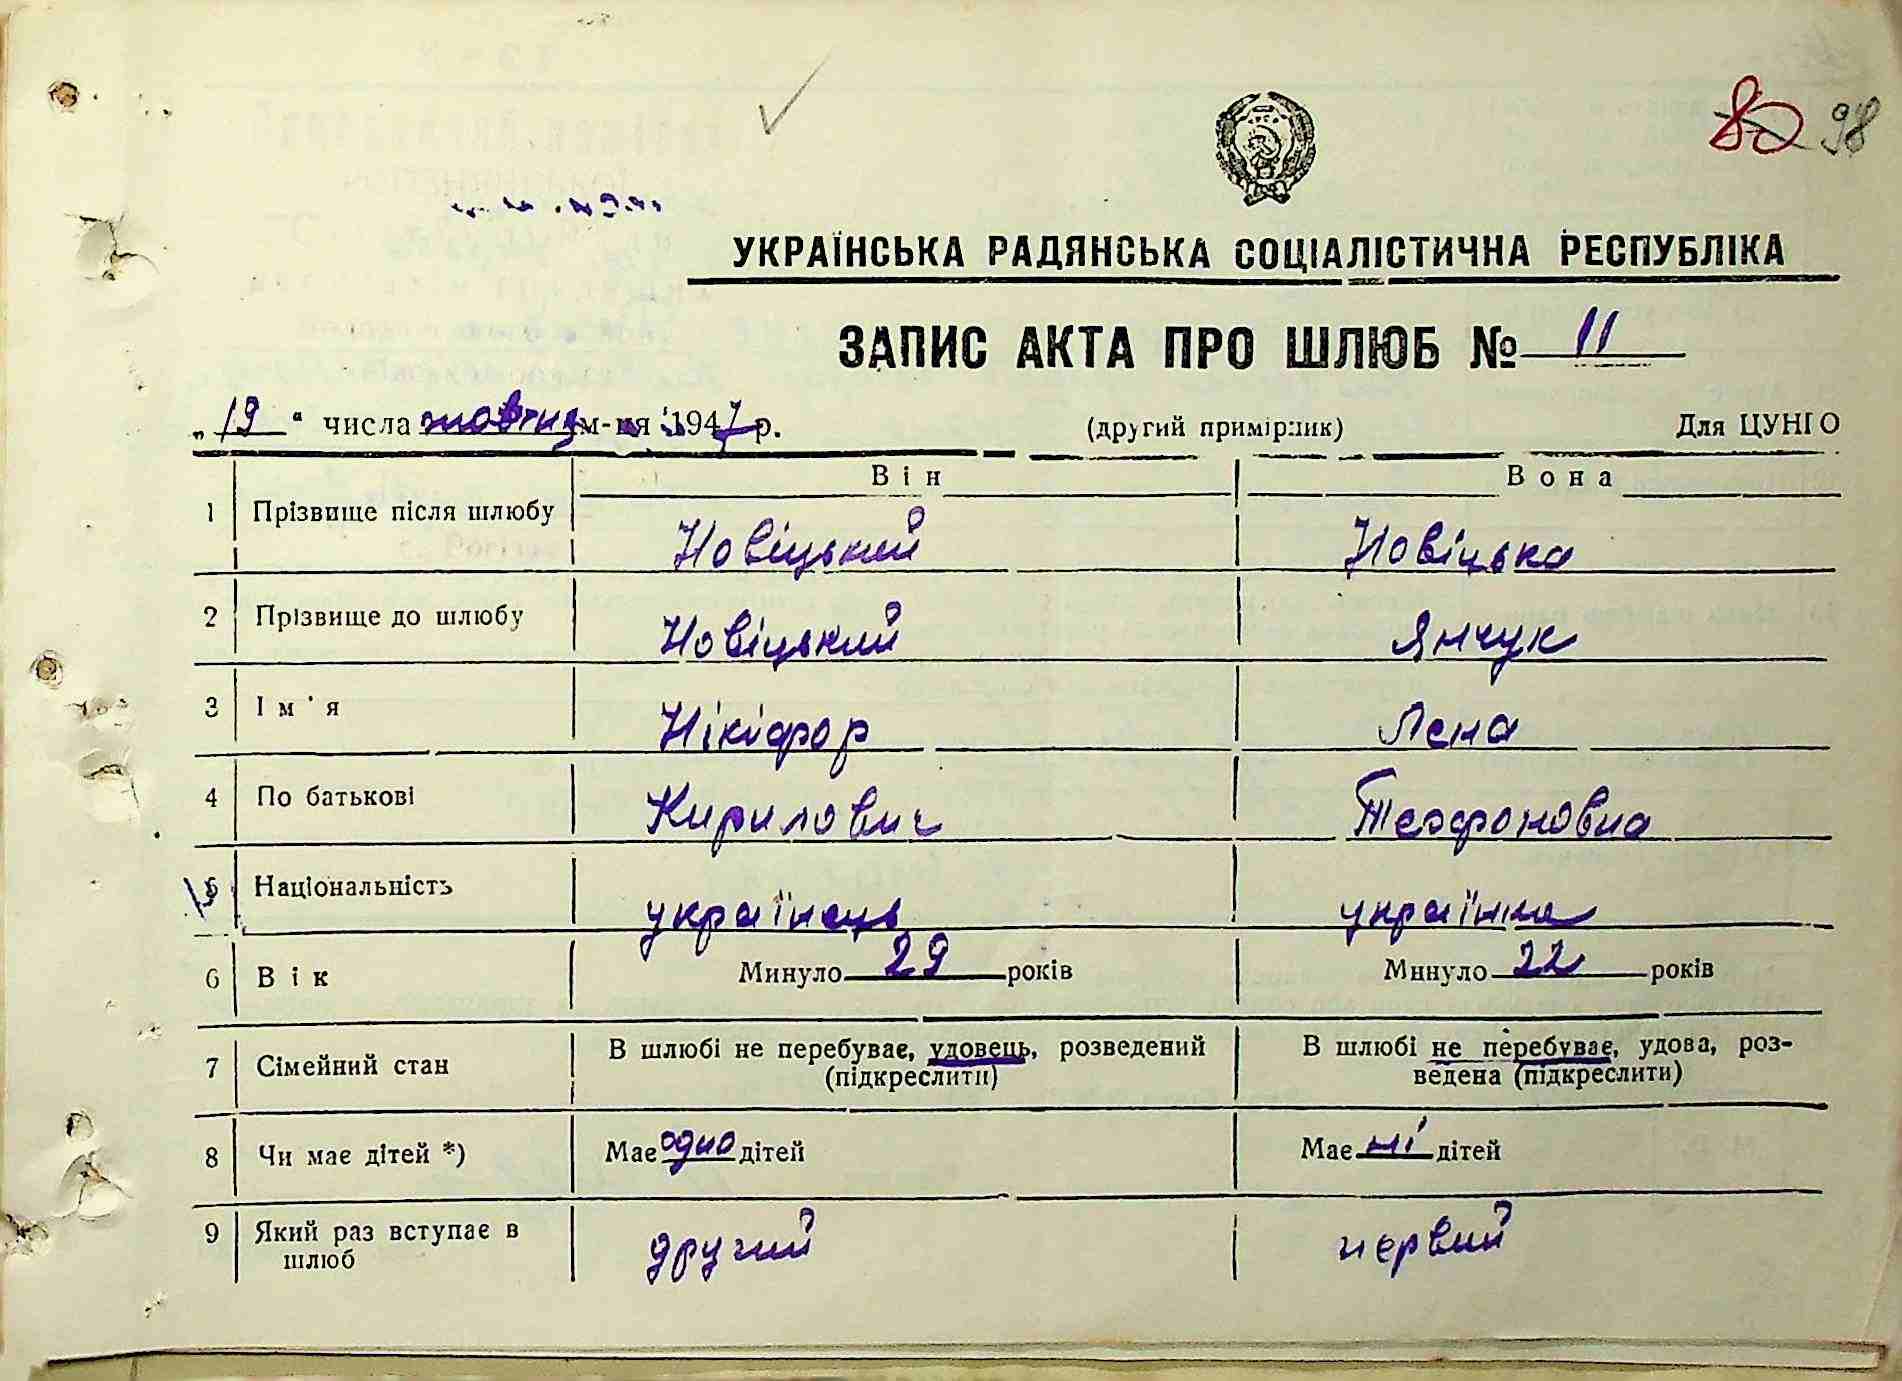 80 98
УКРАЇНСЬКА РАДЯНСЬКА СОЦІАЛІСТИЧНА РЕСПУБЛІКА
ЗАПИС АКТА ПРО ШЛЮБ № 11
„19“ числа жовтня м-ця 1947 р. (другий примірник) Для ЦУНГО
Він Вона
1 Прізвище після шлюбу Новіцький Новіцька
2 Прізвище до шлюбу Новіцький Янчук
3 Ім'я Нікіфор Лена
4 По батькові Кирилович
5 Національність українець українка
6 Вік Минуло 29 років Минуло 22 років
7 Сімейний стан В шлюбі не перебуває, удовець, розведений В шлюбі не перебуває, удова, роз-
(підкреслити) ведена (підкреслити)
8 Чи має дітей *) Має одно дітей Має ні дітей
9 Який раз вступає в другий первий
шлюб